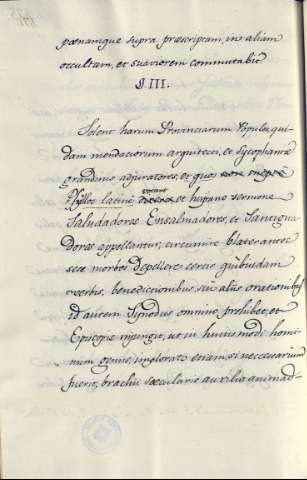 poenamque supra praescriptam, in aliam
occultam, et suaviorem commutabit
§. III.
Solent harum Provinciarum Populos qui
dam mendaciorum architecti, et sycophantae
grandines adjuratores, et quos
Psyllos latine vocant et hispano sermone
Saludadores Ensalmadores, et Santigua
dores appellantur, circumire blaterantes
sese morbos depellere certis quibusdam
verbis, benedictionibus, sive aliis orationibus
id autem Synodus omnino prohibet, et
Episcopis injungit, ut in hujusmodi homi
num genus, implorato etiam si necessarium
fuerit, brachii saecularis auxilio animad-